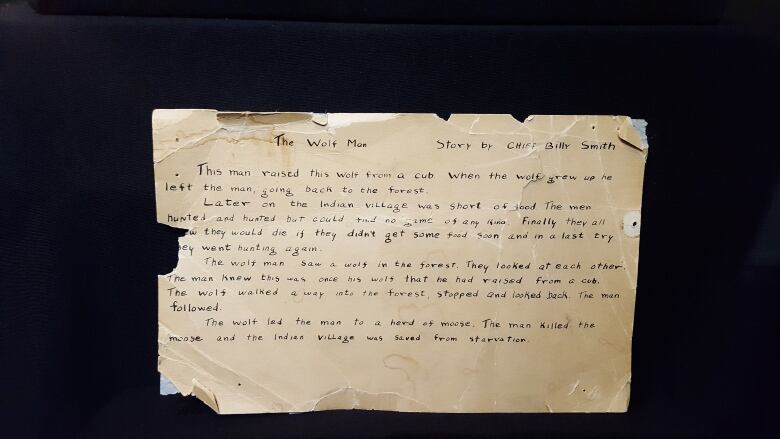 The Wolf Man Story by CHIEF Billy Smith
This man raised this wolf from a cub. When the wolf grew up he
left the man, going back to the forest.
Later on the Indian village was short of food The men
hunted and hunted but could find no game of any kind. Finally they all
w they would die if they didn't get some food soon and in a last try
hey went hunting again.
The wolf man saw a wolf in the forest. They looked at each other.
The man knew this was once his wolf that he had raised from a cub.
The wolf walked a way into the forest, stopped and looked back. The man
followed.
The wolf led the man to a herd of moose. The man killed the
moose and the Indian village was saved from starvation.